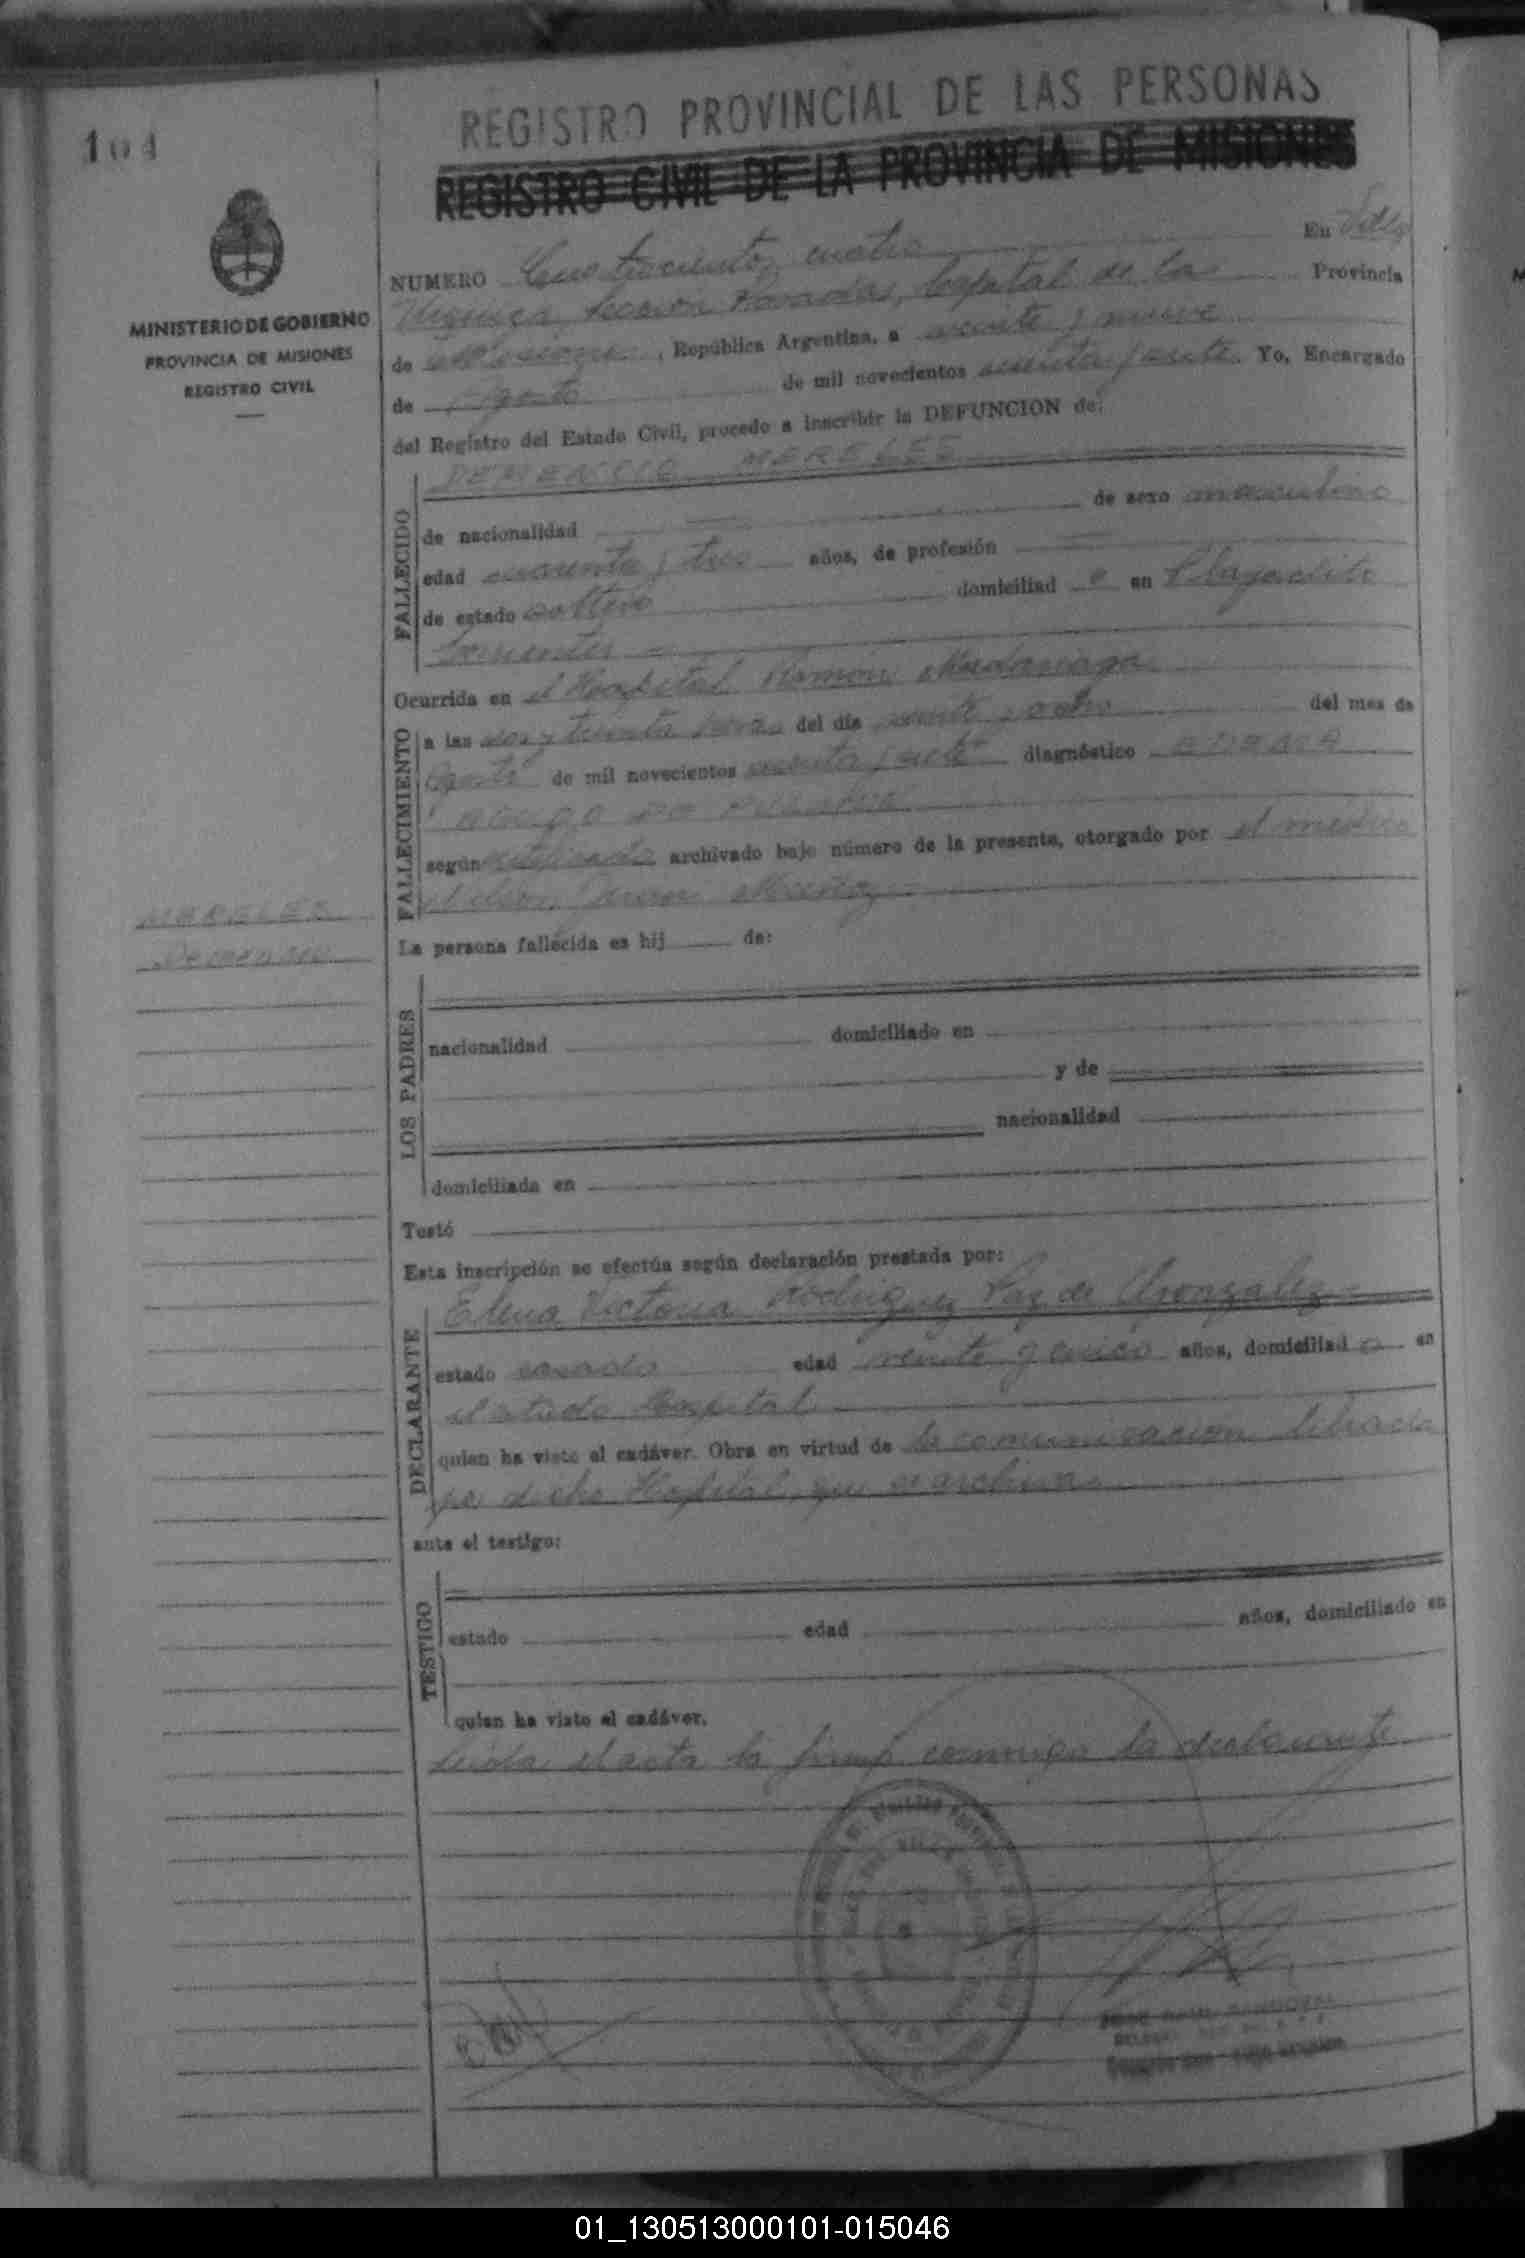 REGISTRO PROVINCIAL DE LAS PERSONAS
REGISTRO CIVIL DE LA PROVINCIA DE MISIONES
MINISTERIO DE GOBIERNO
PROVINCIA DE MISIONES
REGISTRO CIVIL
NUMERO Cuatrocientos cuatro En Villa
Urquiza, Sección Posadas, Capital de la Provincia
de Misiones, República Argentina, a veinte y nueve
de Agosto de mil novecientos setenta y siete. Yo, Encargado
del Registro del Estado Civil, procedo a inscribir la DEFUNCION de:
FALLECIDO
DEMENCIO MERELES
de nacionalidad de sexo masculino
edad cuarenta y tres años, de profesión
de estado soltero domiciliad o en Playadito
Corrientes
FALLECIMIENTO
Ocurrida en el Hospital Ramón Madariaga
a las dos y treinta horas del día veinte y ocho del mes de
Agosto de mil novecientos setenta y siete diagnóstico EDEMA
AGUDO DE PULMON
según certificado archivado bajo número de la presente, otorgado por el médico
MERELES
Demencio
La persona fallecida es hij de:
LOS PADRES
nacionalidad domiciliado en
y de
nacionalidad
domiciliada en
Testó
Esta inscripción se efectúa según declaración prestada por:
DECLARANTE
Elena Victoria Rodriguez Paz de Gonzalez
estado casada edad veinte y cinco años, domiciliad a en
el citado Hospital
quien ha visto el cadáver. Obra en virtud de la comunicación librada
por dicho Hospital, que se archiva
ante el testigo:
TESTIGO
estado edad años, domiciliado en
quien ha visto el cadáver.
Leida el acta la firma conmigo la declarante
01_130513000101-015046